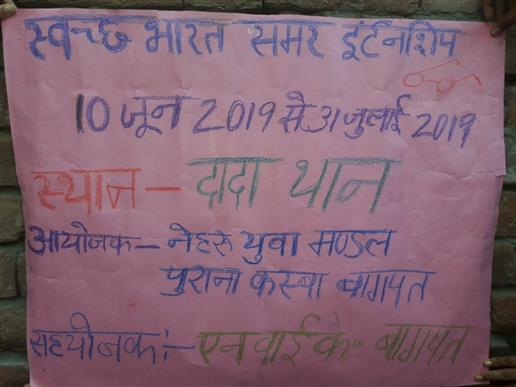 स्वच्छ भारत समर इंटर्नशिप
10 जून 2019 से 31 जुलाई 2019
स्थान – दादा थान
आयोजक – नेहरु युवा मण्डल
पुराना कस्बा बागपत
सहयोजक:- एन वाई के॰ बागपत